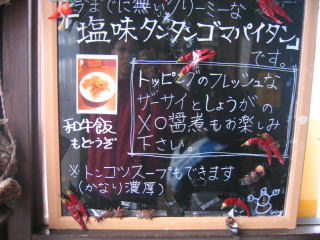 今までに無いクリーミーな
「塩味タンタンゴマパイタン」
です。
トッピングのフレッシュな
ザーサイとしょうがの
XO醤煮もお楽しみ
下さい。
和牛飯
もどうぞ
※トンコツスープもできます
(かなり濃厚)